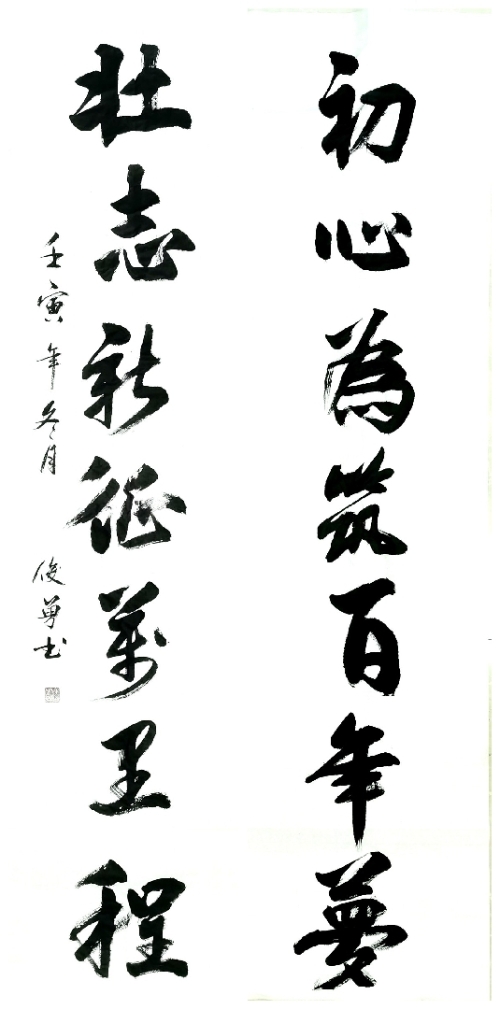 初心為筑百年夢
壮志新征萬里程
壬寅年冬月 俊勇书